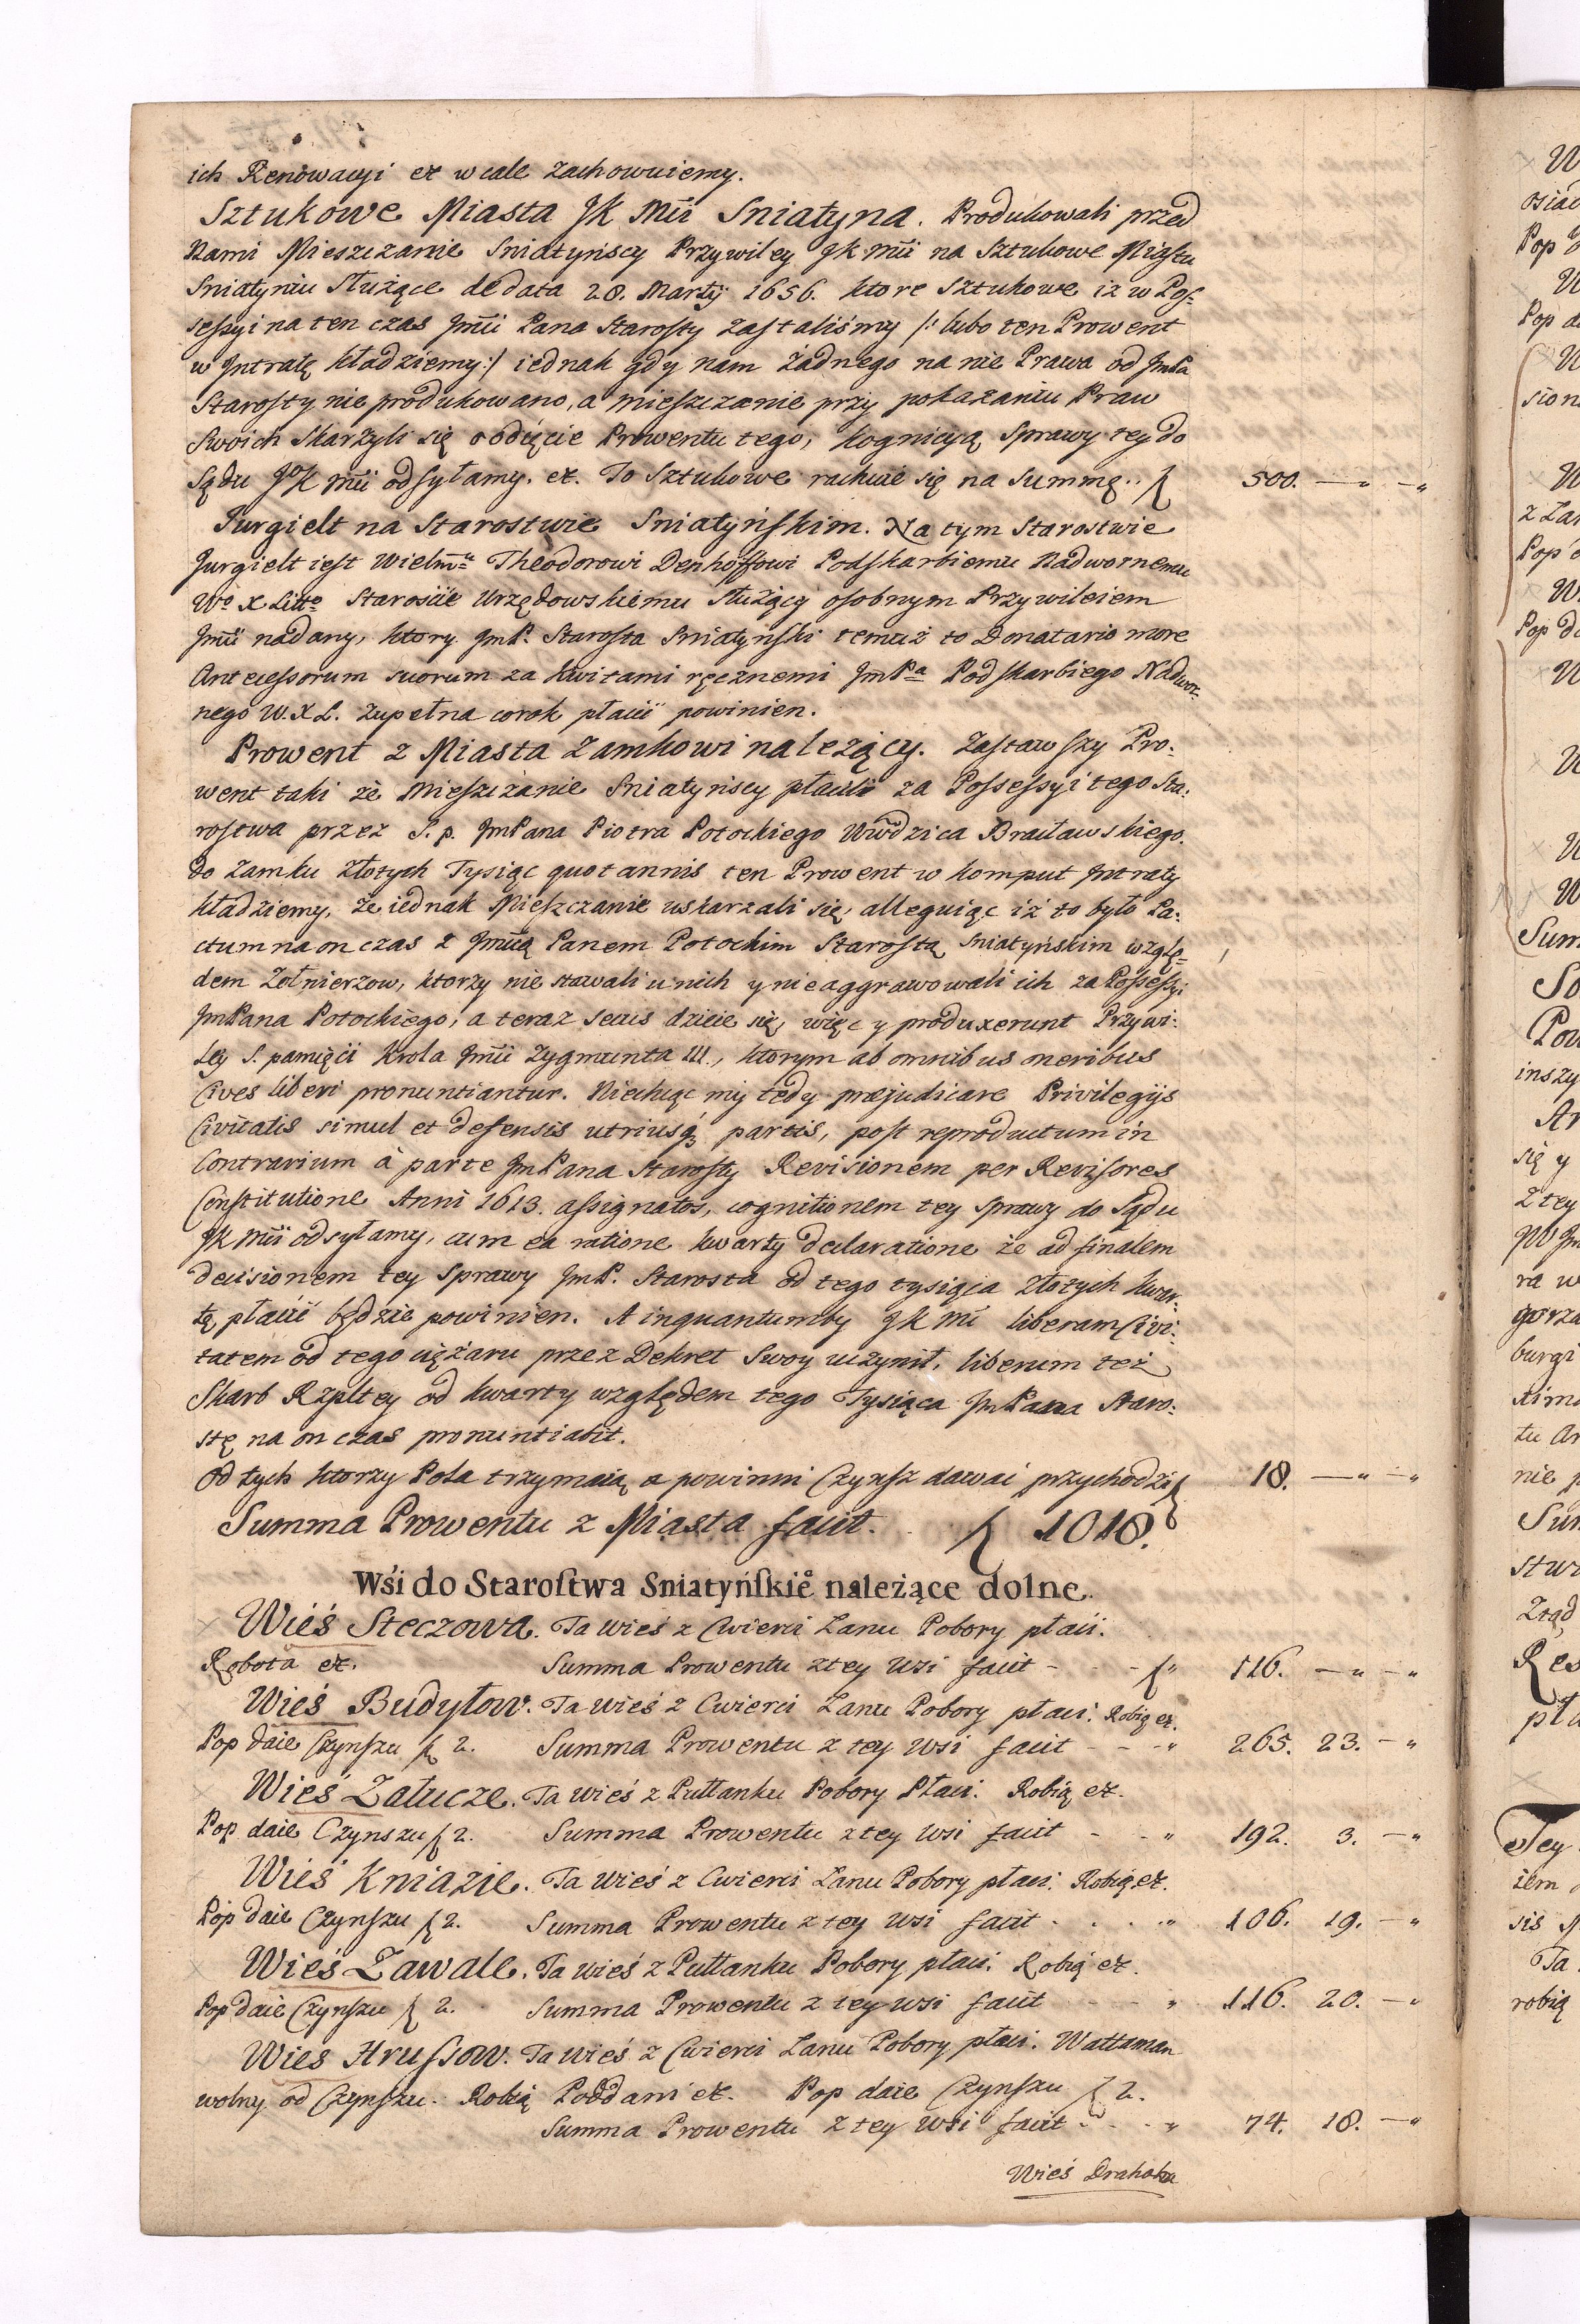 ich Renowacyi etc w cale zachowuiemy.
Sztukowe Miasta JK Mci Sniatyna. Produkowali przed
Nami Mieszczanie Sniatyńscy Przywiley JK Mci na Sztukowe Miastu
Sniatyniu służące de data 28. Martij 1656. ktore Sztukowe iż w Pos-
sessyi na ten czas Jmci Pana Starosty zastaliśmy /: lubo ten Prowent
w Jntratę kładziemy:/ iednak gdy nam żadnego na nie Prawa od JmPa
Starosty nie produkowano, a mieszczanie przy pokazaniu Praw
Swoich skarżyli się o odięcie Prowentu tego, kognicyą sprawy tey do
Sądu JoK Mci odsyłamy. etc. To Sztukowe rachuie się na summę.. ƒ 500. — " — "
Jurgielt na Starostwie Sniatyńskim. Na tym Starostwie
Jurgielt iest Wielmu Theodorowi Denhoffowi Podskarbiemu Nadwornemu
Wo X Litto Staroście Urzędowskiemu służący osobnym Przywileiem
Jmci nadany, ktory JmP. Starosta Sniatyński temuż to Donatario more
Antecessorum suorum za kwitami ręcznemi JmPa Podskarbiego Nadwor-
nego W. X L. zupełna corok płacić powinien.
Prowent z Miasta Zamkowi należący. Zastawszy Pro-
went taki że Mieszczanie Sniatyńscy płacili za Possessyi tego Sta-
rostwa przez S. p. JmPana Piotra Potockiego Wwdzica Bracławskiego
do Zamku złotych Tysiąc quotannis ten Prowent w komput Jntraty
kładziemy, że iednak Mieszczanie uskarzali się, alleguiąc iż to było Pa-
ctum na on czas z Jmcią Panem Potockim Starostą Sniatyńskim wzglę-
dem Zołnierzow, ktorzy nie stawali u nich y nie aggrawowali ich za Possessyi
JmPana Potockiego, a teraz secus dzieie się, więc y produxerunt Przywi-
ley S. pamięci Krola Jmci Zygmunta III., ktorym ab omnibus oneribus
Cives liberi pronuntiantur. Niechcąc my tedy præjudicare Privilegijs
Civitatis simul et defensis utriusq3 partis, post reproductum in
Contrarium à parte JmPana Starosty Revisionem per Revisores
Constitutione Anni 1613. assignatos, cognitionem tey sprawy do Sądu
JK Mci odsyłamy, cum ea ratione kwarty declaratione że ad finalem
decisionem tey Sprawy JmP. Starosta od tego tysiąca złotych kwar-
tę płacić będzie powinien. A inquantumby JK Mć liberam Civi-
tatem od tego ciężaru przez Dekret Swoy uczynił, liberum też
Skarb Rzpltey od kwarty względem tego Tysiąca JmPana Staro-
stę na on czas pronuntiabit.
Od tych ktorzy Pola trzymaią a powinni Czynsz dawać przychodzi ƒ 18. — " — "
Summa Prowentu z Miasta facit. ƒ 1018.
Wśi do Starostwa Sniatyńskiegο należące dolne.
Wieś Steczowa. Ta wieś z Cwierci Łanu Pobory płaci.
Robota etc. Summa Prowentu z tey wsi facit - - - ƒ " 116. — " — "
Wieś Budyłow. Ta wieś z Cwierci Łanu Pobory płaci. Robią etc.
Pop daie Czynszu ƒ 2. Summa Prowentu z tey wsi facit - - - " 265. 23. — "
Wieś Załucze. Ta wieś z Pułłanku Pobory Płaci. Robią etc.
Pop daie Czynszu ƒ 2. Summa Prowentu z tey wsi facit - - " 192. 3. — "
Wieś Kniazie. Ta wieś z Cwierci Łanu Pobory płaci. Robią etc.
Pop daie Czynszu ƒ 2. Summa Prowentu z tey wsi facit . . . " 106. 19. — "
Wieś Zawale. Ta wieś z Pułłanku Pobory płaci. Robią etc.
Pop daie Czynszu ƒ 2. Summa Prowentu z tey wsi facit - - " 116. 20. — "
Wieś Hrussow. Ta wieś z Cwierci Łanu Pobory płaci. Wattaman
wolny od Czynszu. Robią Poddani etc. Pop daie Czynszu ƒ 2.
Summa Prowentu z tey wsi facit - - - " 74. 18. — "
Wieś Drahoka